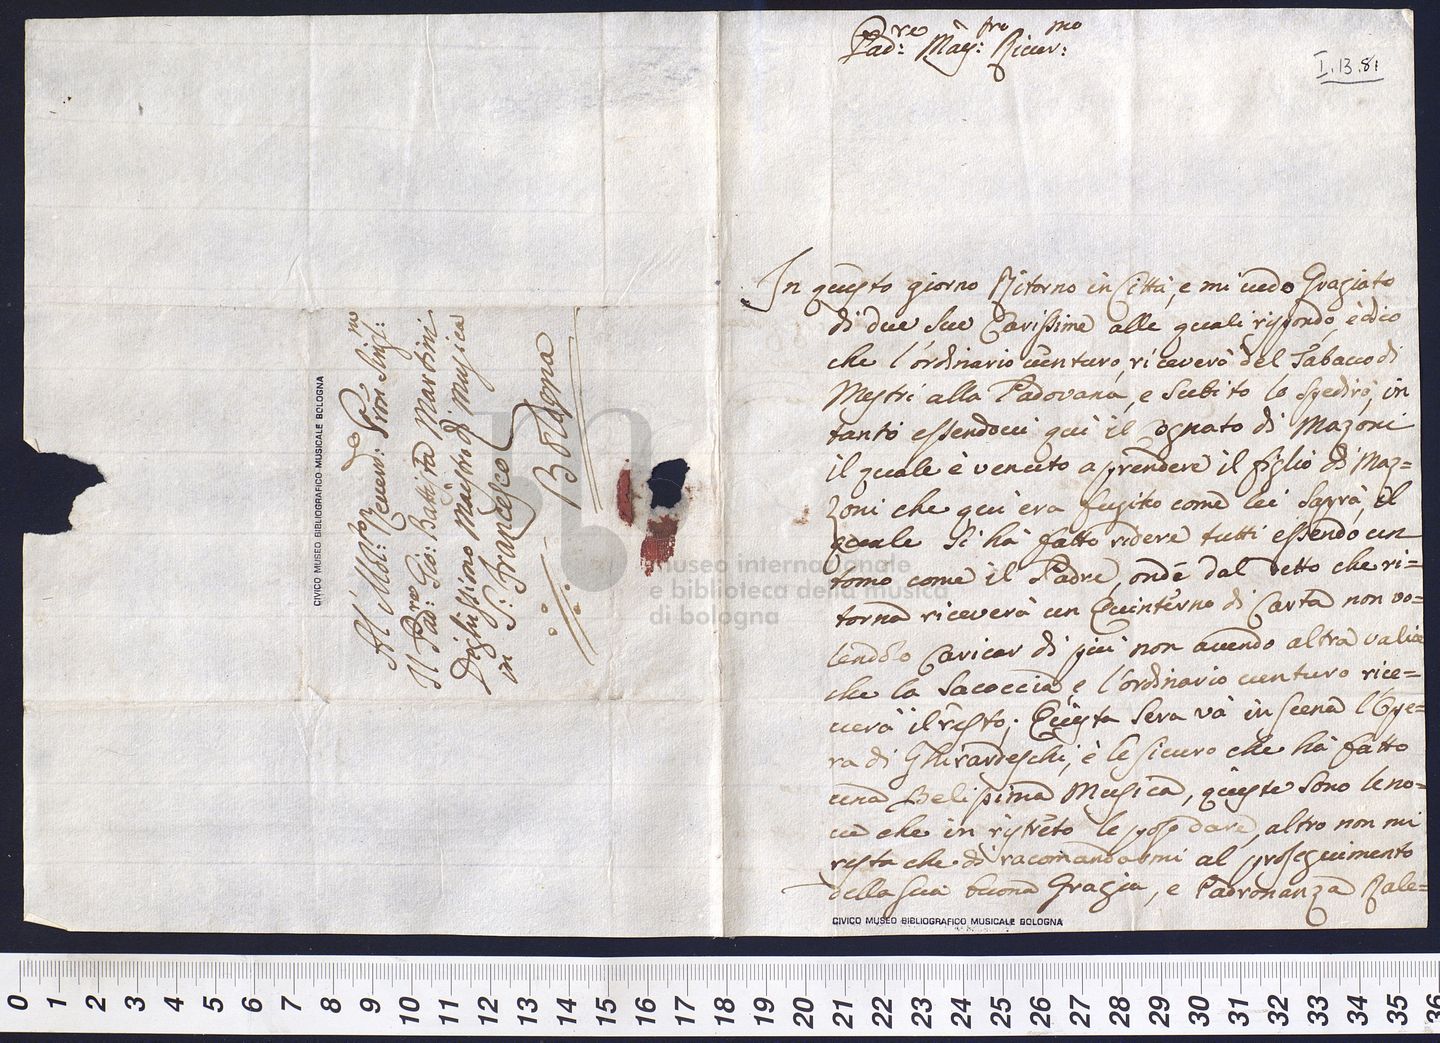 Pad:re Mag:tro Ricev:mo
I.13.81
In questo giorno Ritorno in Città, e mi uedo Graziato
di due sue Carissime alle quali rispondo, è dico
che l'ordinario uenturo, riceverà del Tabacco di
Mestri alla Padovana, e subito lo spedirò, in
tanto essendoui qui il Cognato di Mazoni
il quale è venuto a prendere il figlio di Maz=
zoni che qui era fugitto come lei saprà, il
quale si hà fatto ridere tutti essendo un
tomo come il Padre, onde dal detto che ri=
torna riceverà un Quinterno di Carta non vo=
lendolo Caricar di più non auendo altra valice
che la Sacoccia, e l'ordinario uenturo rice=
uerà il resto; Questa sera và in scena l'Ope=
ra di Ghirardeschi, è le sicuro che hà fatto
una Belissima Musica, queste sono le no=
ue che in ristreto le posso dare, altro non mi
resta che di racomandarmi al proseguimento
della sua buona Grazia, e Padronanza
CIVICO MUSEO BIBLIOGRAFICO MUSICALE BOLOGNA
Al Mol:to Reuerend:o P:re Pron Sing:mo
Il Pad:re Gio: Battista Martini
Dignissimo Mastro di Musica
in S: Francesco
Bologna
CIVICO MUSEO BIBLIOGRAFICO MUSICALE BOLOGNA
museo internazionale
e biblioteca della musica
di bologna
0 1 2 3 4 5 6 7 8 9 10 11 12 13 14 15 16 17 18 19 20 21 22 23 24 25 26 27 28 29 30 31 32 33 34 35 36